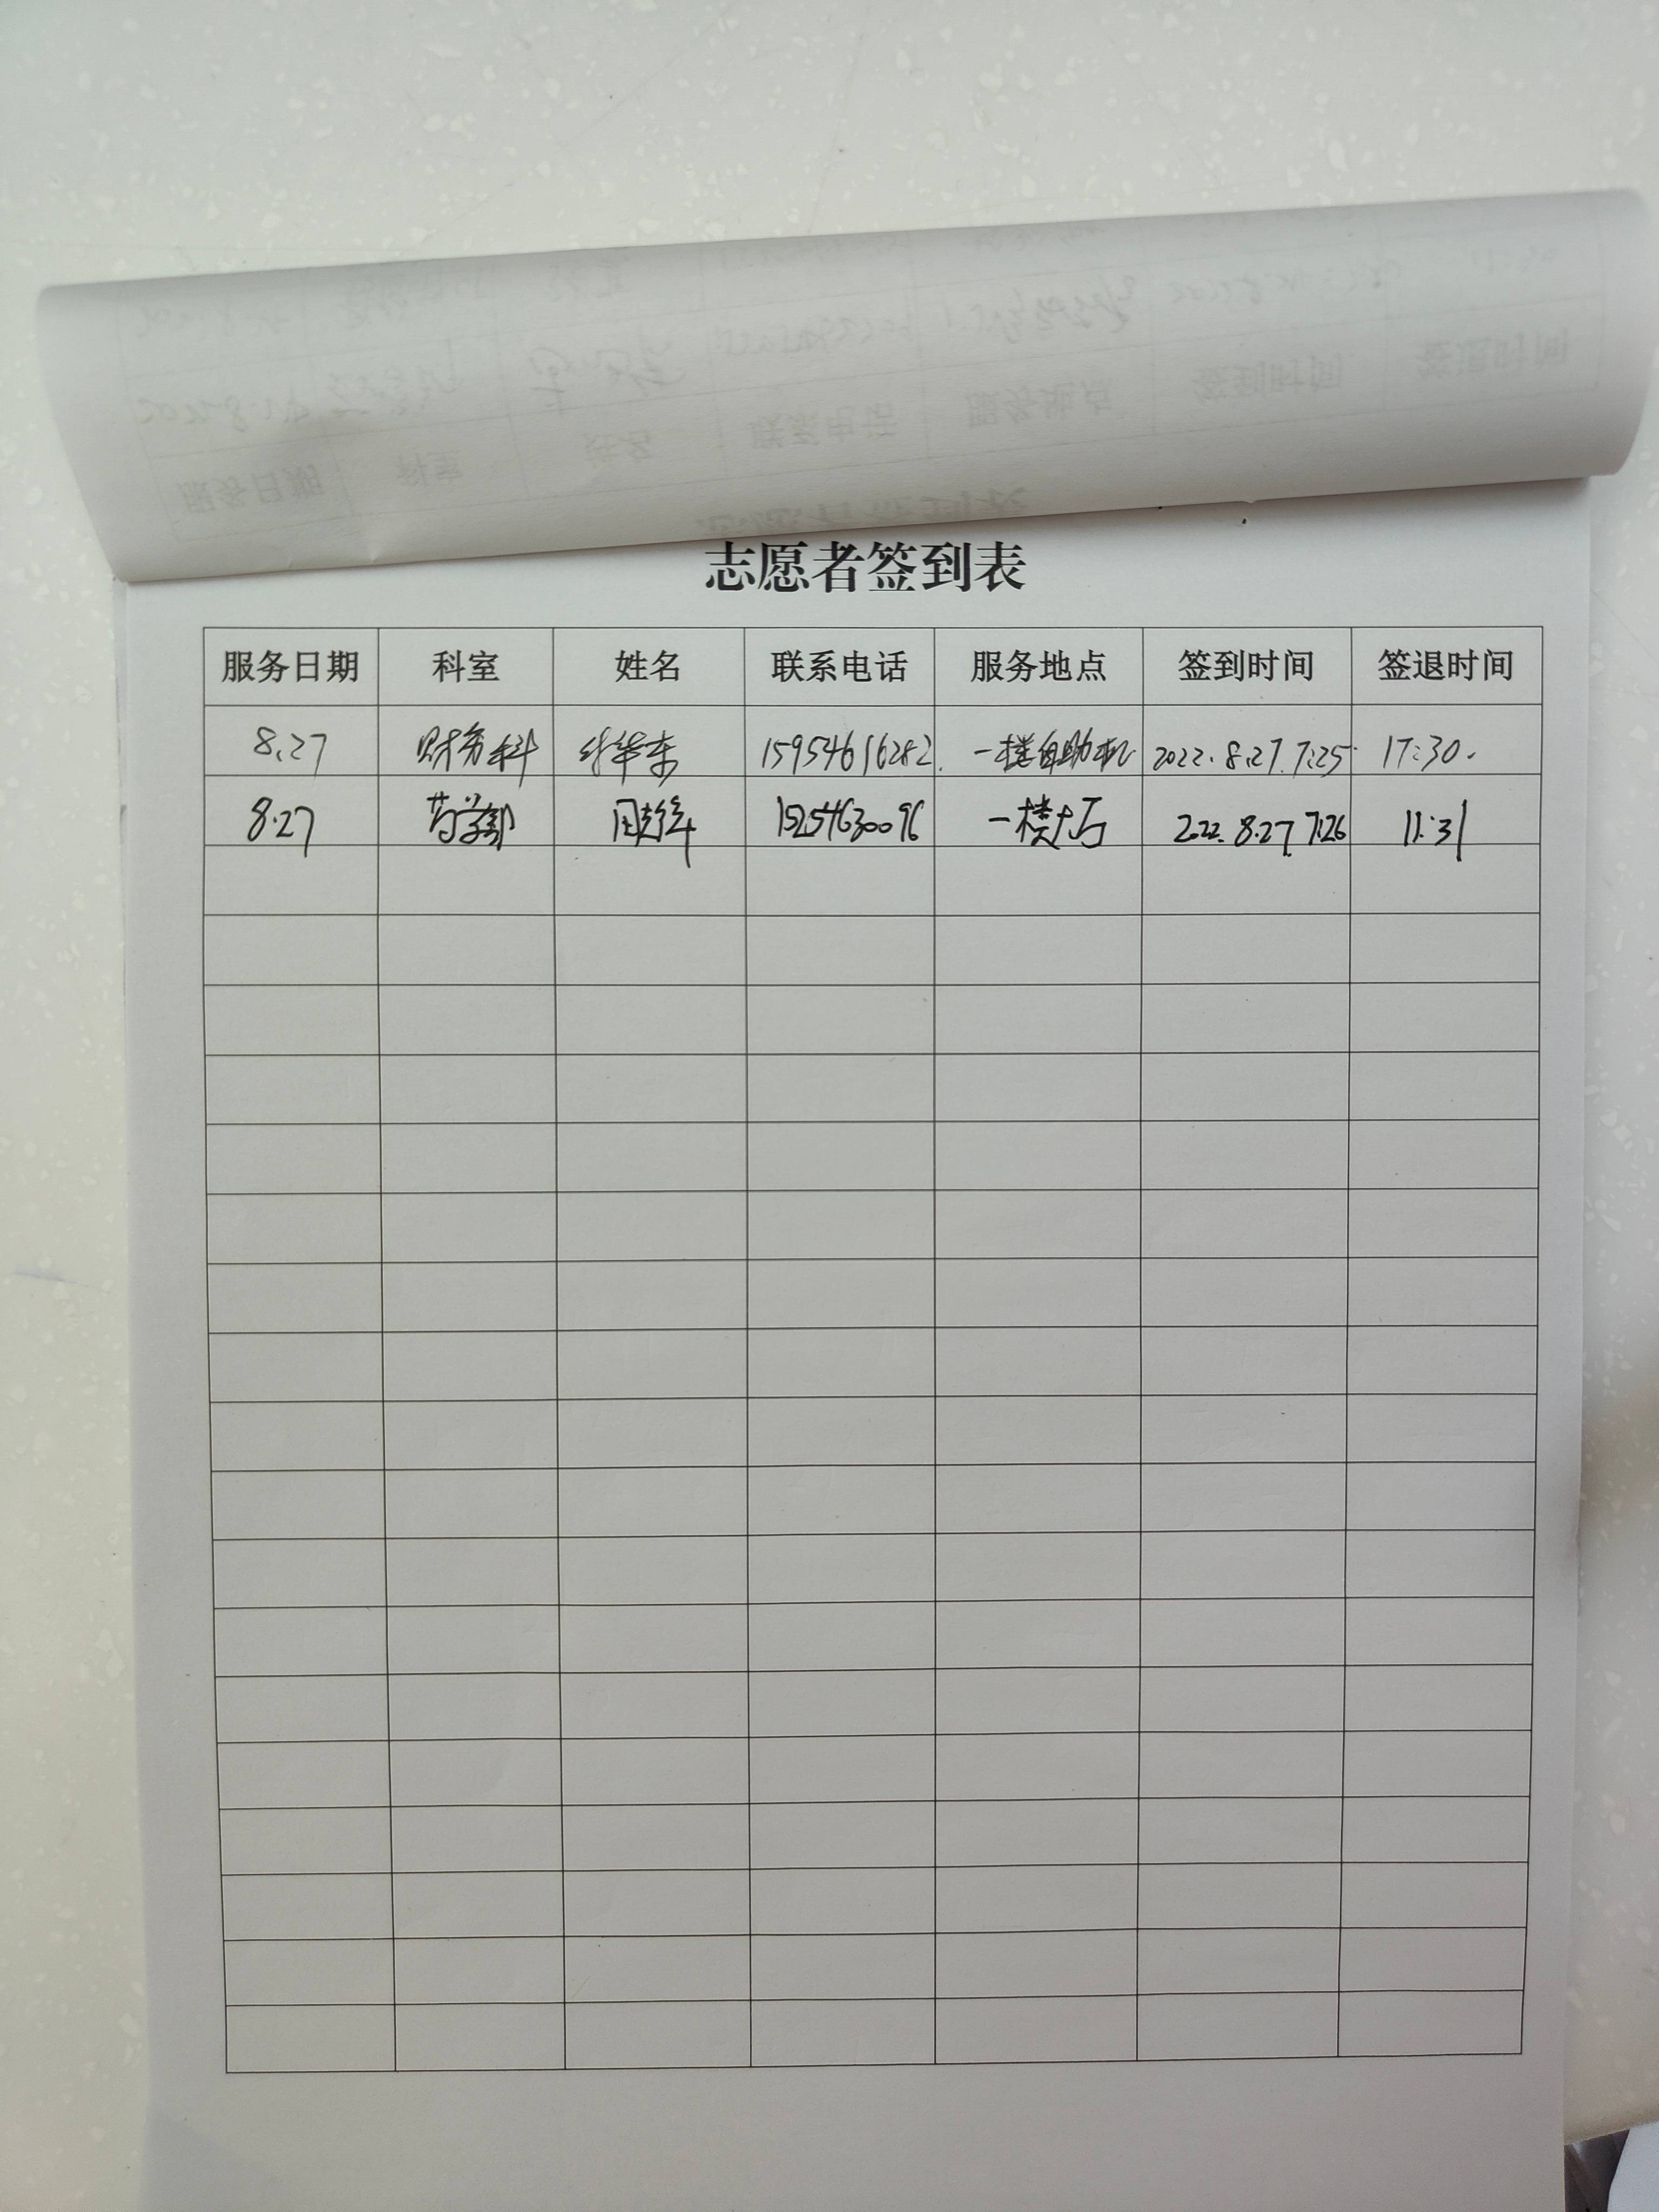 志愿者签到表
服务日期 科室 姓名 联系电话 服务地点 签到时间 签退时间
8.27 财务科 15954616282 一楼自助机 2022.8.27.7:25 17:30.
8.27 药学部 15254630096 一楼大厅 2022.8.27 7:26 11:31